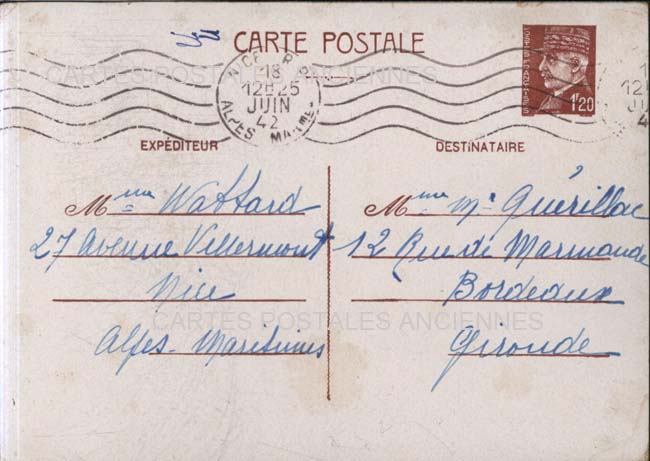 CARTE POSTALE
CARTES POSTALES ANCIENNES
NICE R.P.
18
12H25
JUIN
42
ALPES MARMES
1F20
EXPÉDITEUR
Mme Wattard
27 Avenue Villermont
Nice
Alpes-Maritimes
DESTINATAIRE
Mme Mce Guérillac
12 Rue de Marmande
Bordeaux
Gironde
CARTES POSTALES ANCIENNES